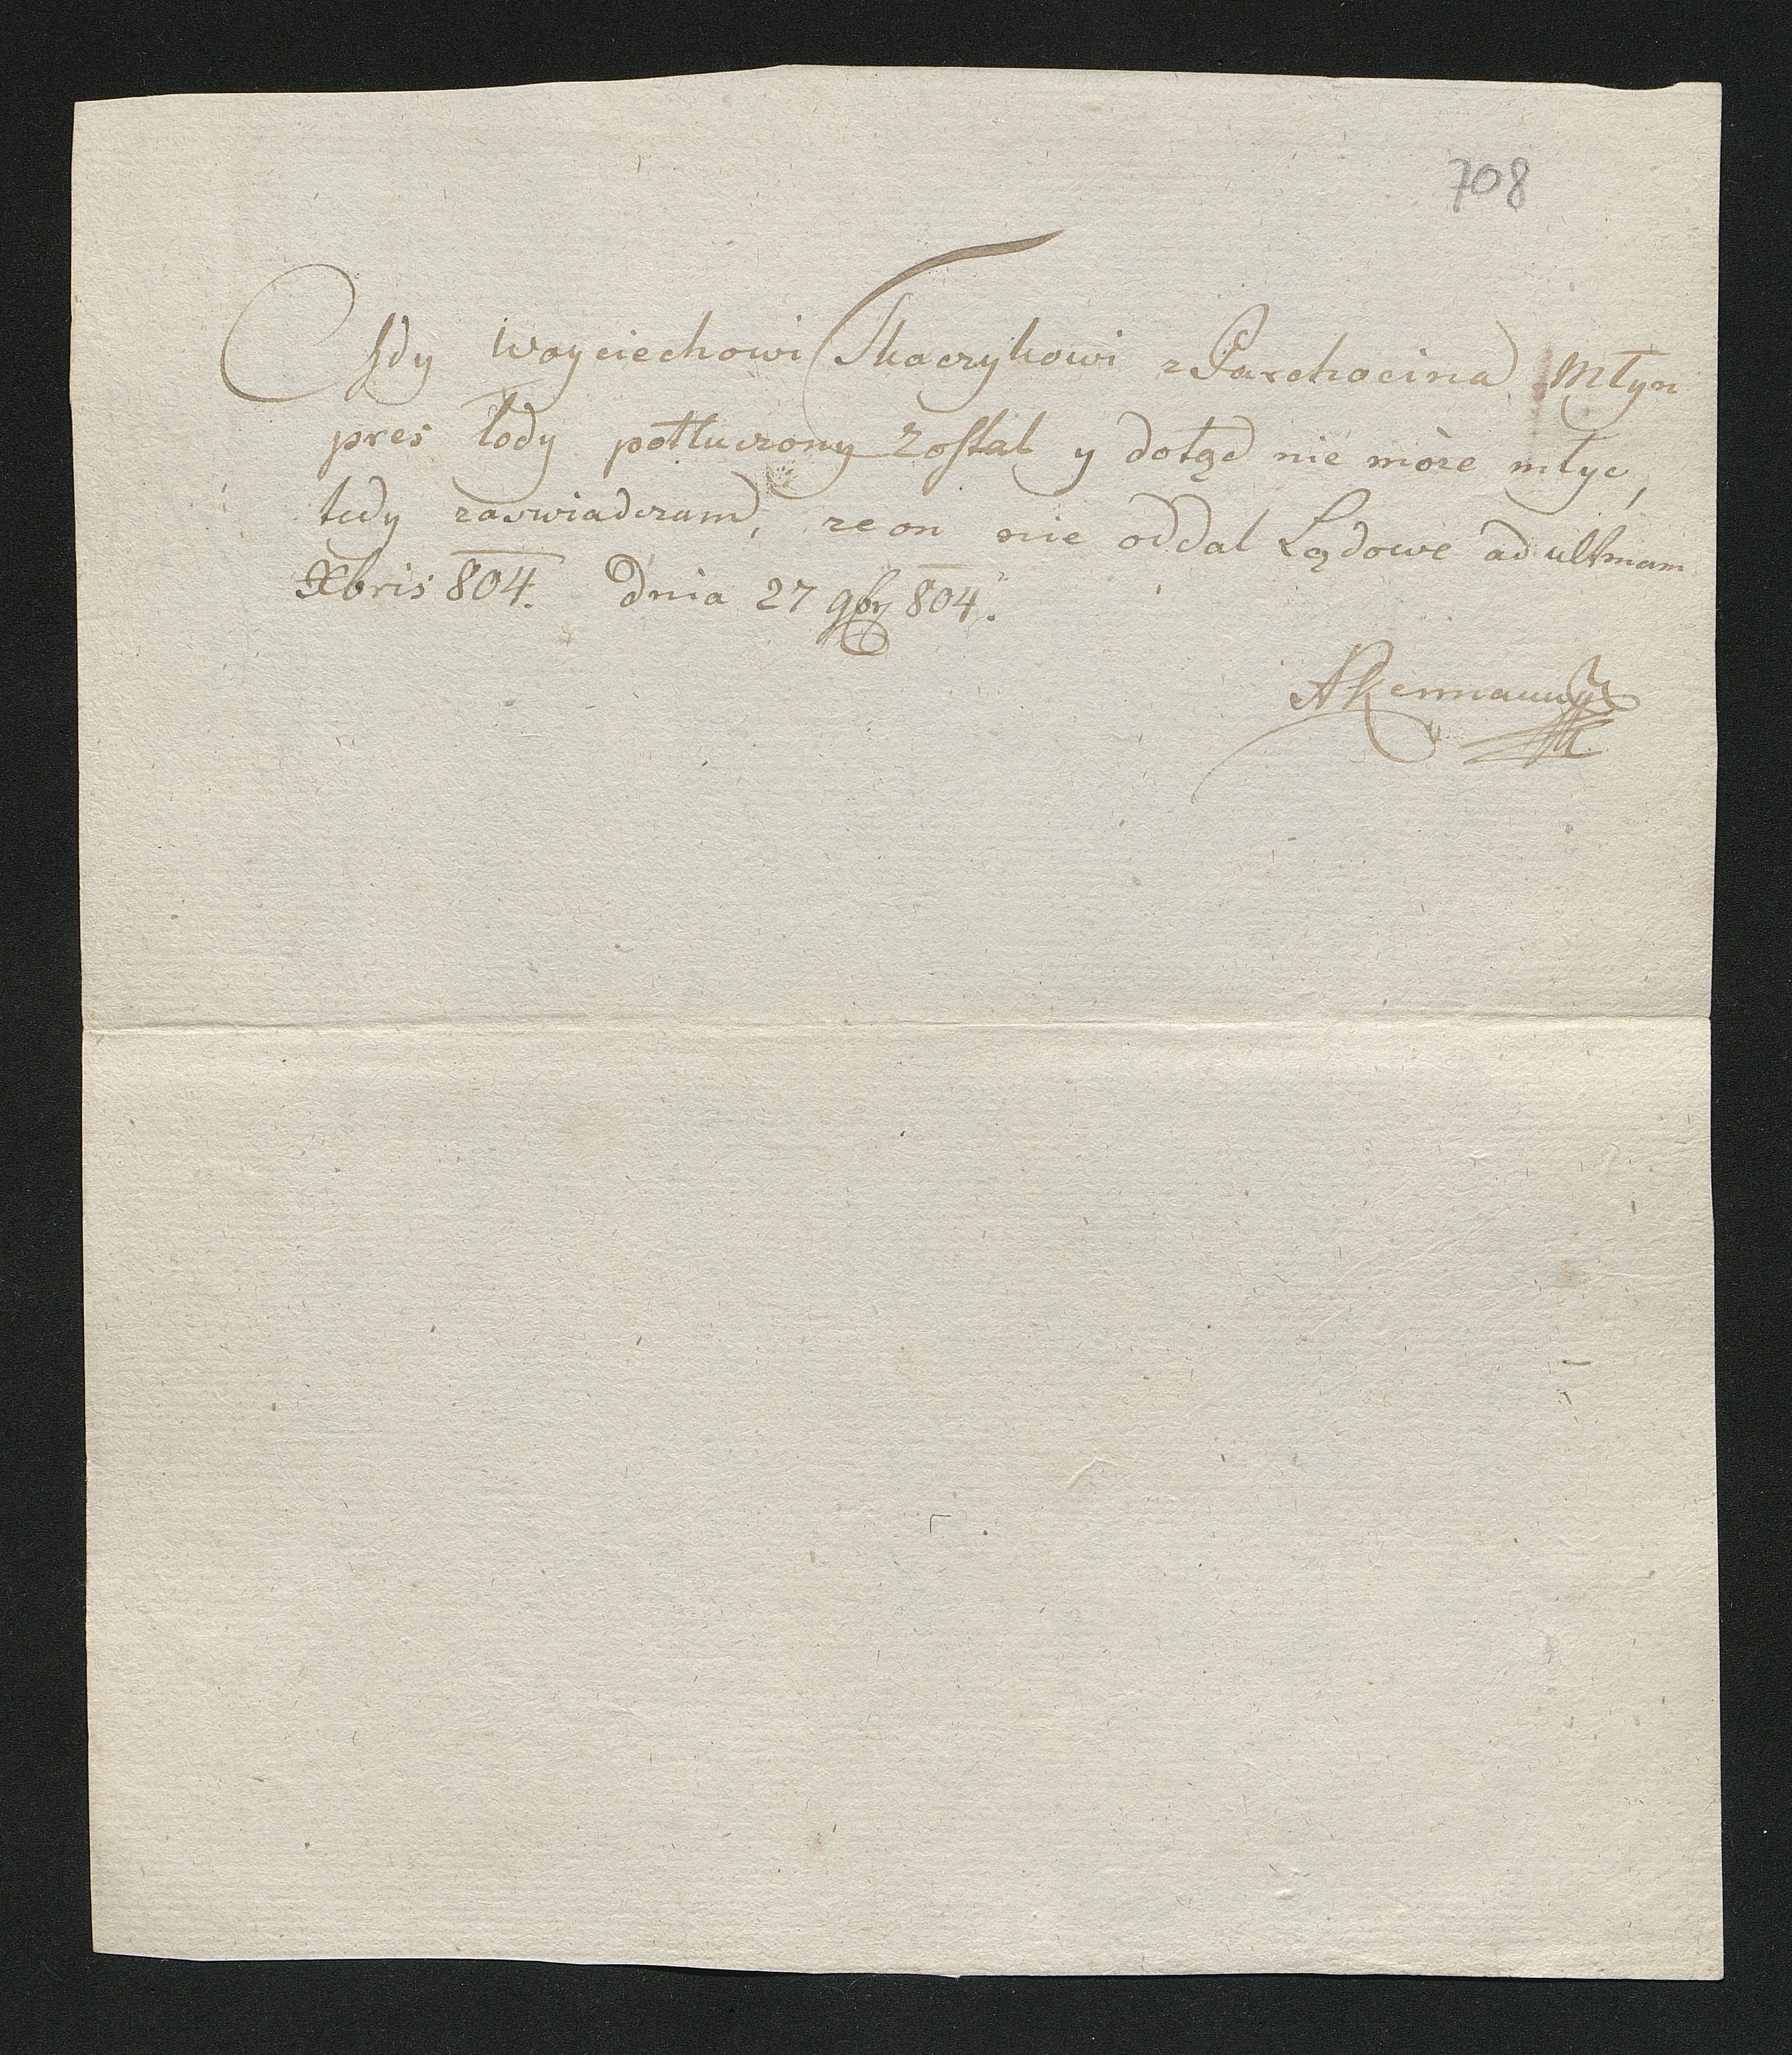 708
Gdy Woyciechowi Tkaczykowi z Parchocina Młyn
pres lody potłuczony Zostal y dotąd nie może młyć,
tedy zaswiadczam, ze on nie oddal Lądowe ad ultimam
Xbris 804. Dnia 27 9br 804.
Akermann